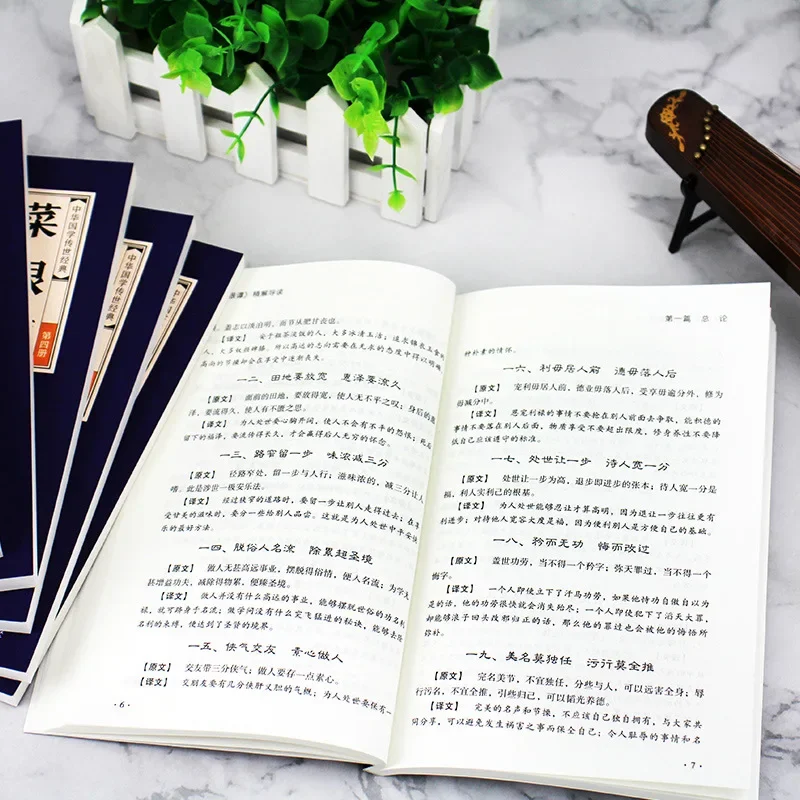 菜
中华国学传世经典
第四册
中华国学传世经典
中华国学传世经典
根谭》精解导读
盖志以淡泊明，而节从肥甘丧也。
【译文】 安于粗茶淡饭的人，大多冰清玉洁；追求锦衣玉食的
人，大多奴颜婢膝。所以高远的志向需要在无求的态度中得以明确，
高尚的节操却会在享受中逐渐丧失。
一二、田地要放宽 惠泽要流久
【原文】 面前的田地，要放得宽，使人无不平之叹；身后的惠
泽，要流得久，使人有不匮之思。
【译文】 为人处世要心胸开阔，使人不会有不平的怨恨；死后
留下的福泽，要流传得长久，才会赢得后人无穷的怀念。
一三、路窄留一步 味浓减三分
【原文】 径路窄处，留一步与人行；滋味浓的，减三分让人
嗜。此是涉世一极安乐法。
【译文】 经过狭窄的道路时，要留一步让别人走得过去；在享
受甘美的滋味时，要分一些给别人品尝。这就是为人处世中平安快
乐的最好方法。
一四、脱俗人名流 除累超圣境
【原文】 做人无甚高远事业，摆脱得俗情，便入名流；为学无
甚增益功夫，减除得物累，便臻圣境。
【译文】 做人并没有什么高远的事业，能够摆脱世俗的功名利
禄，就可跻身于名流；做学问没有什么突飞猛进的秘诀，能够去除
名利的束缚，便达到了圣贤的境界。
一五、侠气交友 素心做人
【原文】 交友带三分侠气；做人要存一点素心。
【译文】 交朋友要有几分侠肝义胆的气概；为人处世要保有一
·6·
第一篇 总 论
种朴素的情怀。
一六、利毋居人前 德毋落人后
【原文】 宠利毋居人前，德业毋落人后，受享毋逾分外，修为
毋减分中。
【译文】 恩宠利禄的事情不要抢在别人前面去争取，能积德的
事情不要落在别人后面，物质享受不要超出限度，修身养性不要降
低自己应该遵守的标准。
一七、处世让一步 待人宽一分
【原文】 处世让一步为高，退步即进步的张本；待人宽一分是
福，利人实利己的根基。
【译文】 为人处世能够忍让才算高明，因为退让一步往往更有
利进步；对待他人宽容大度是福，因为便利别人是方便自己的基础。
一八、矜而无功 悔而改过
【原文】 盖世功劳，当不得一个矜字；弥天罪过，当不得一个
悔字。
【译文】 一个人即使立下了汗马功劳，如果他恃功自傲自以为
是的话，他的功劳很快就会消失殆尽；一个人即使犯下了滔天大罪，
却能够浪子回头改邪归正的话，那么他的罪过也会被他的悔悟所
弥补。
一九、美名莫独任 污行莫全推
【原文】 完名美节，不宜独任，分些与人，可以远害全身；辱
行污名，不宜全推，引些归己，可以韬光养德。
【译文】 完美的名声和节操，不应该自己独自拥有，与大家共
同分享，可以避免发生祸害之事而保全自己；令人耻辱的事情和名
·7·